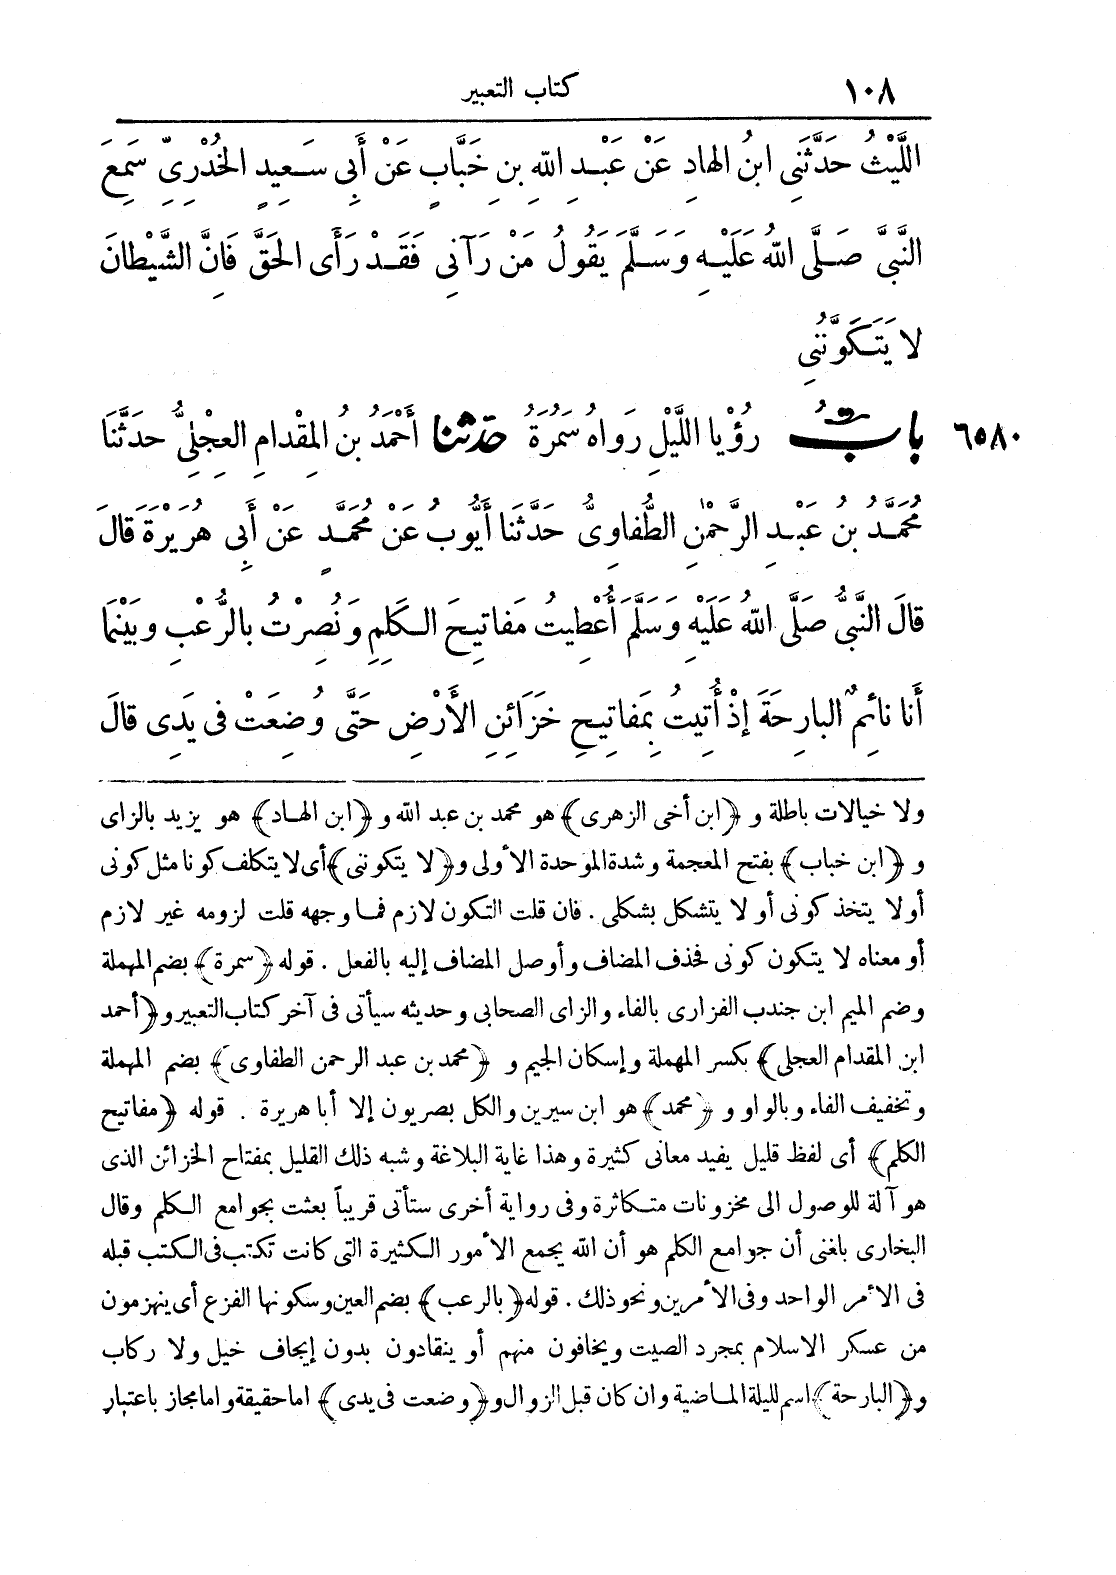 ١٠٨ كتاب التعبير
اللَّيْثُ حَدَّثَنِى ابنُ الهادِ عَنْ عَبْدِ اللهِ بنِ خَبَّابٍ عَنْ أَبِى سَعِيدٍ الخُدْرِىِّ سَمِعَ
النَّبِىَّ صَلَّى اللهُ عَلَيْهِ وَسَلَّمَ يَقُولُ مَنْ رَآنِى فَقَدْ رَأَى الحَقَّ فَانَّ الشَّيْطانَ
لا يَتَكَوَّنُنِى
٦٥٨٠ بابُ رُؤْيا اللَّيْلِ رَواهُ سَمُرَةُ حدثنا أَحْمَدُ بنُ المِقْدامِ العِجْلِىُّ حدَّثَنَا
مُحَمَّدُ بنُ عَبْدِ الرَّحْمٰنِ الطُّفاوِىُّ حَدَّثَنا أَيُّوبُ عَنْ مُحَمَّدٍ عَنْ أَبِى هُرَيْرَةَ قالَ
قالَ النَّبِىُّ صَلَّى اللهُ عَلَيْهِ وَسَلَّمَ أُعْطِيتُ مَفاتِيحَ الكَلِمِ وَنُصِرْتُ بالرُّعْبِ وبَيْنَما
أَنا نائِمٌ البارِحَةَ إذْ أُتِيتُ بِمَفاتِيحِ خَزَائِنِ الأَرْضِ حَتَّى وُضِعَتْ فى يَدِى قالَ
ولا خيالات باطلة و ﴿ابن أخى الزهرى﴾ هو محمد بن عبد الله و ﴿ابن الهاد﴾ هو يزيد بالزاى
و ﴿ابن خباب﴾ بفتح المعجمة وشدة الموحدة الأولى و﴿لا يتكوننى﴾ أى لا يتكلف كونا مثل كونى
أولا يتخذ كونى أو لا يتشكل بشكلى. فان قلت التكون لازم فما وجهه قلت لزومه غير لازم
أو معناه لا يتكون كونى فحذف المضاف وأوصل المضاف إليه بالفعل. قوله ﴿سمرة﴾ بضم المهملة
وضم الميم ابن جندب الفزارى بالفاء والزاى الصحابى وحديثه سيأتى فى آخر كتاب التعبير و﴿أحمد
ابن المقدام العجلى﴾ بكسر المهملة وإسكان الجيم و ﴿محمد بن عبد الرحمن الطفاوى﴾ بضم المهملة
وتخفيف الفاء وبالواو و ﴿محمد﴾ هو ابن سيرين والكل بصريون إلا أبا هريرة . قوله ﴿مفاتيح
الكلم﴾ أى لفظ قليل يفيد معانى كثيرة وهذا غاية البلاغة وشبه ذلك القليل بمفتاح الخزائن الذى
هو آلة للوصول الى مخزونات متكاثرة وفى رواية أخرى ستأتى قريباً بعثت بجوامع الكلم وقال
البخارى بلغنى أن جوامع الكلم هو أن الله يجمع الأمور الكثيرة التى كانت تكتب فى الكتب قبله
فى الأمر الواحد وفى الأمرين ونحو ذلك. قوله ﴿بالرعب﴾ بضم العين وسكونها الفزع أى ينهزمون
من عسكر الاسلام بمجرد الصيت ويخافون منهم أو ينقادون بدون إيجاف خيل ولا ركاب
و﴿البارحة﴾ اسم لليلة الماضية وان كان قبل الزوال و﴿وضعت فى يدى﴾ اما حقيقة واما مجاز باعتبار